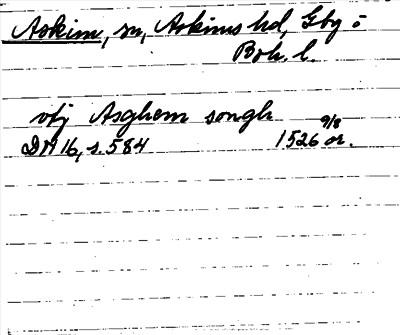 Askim, sn, Askims hd, Gbg o
Boh. l.
vtj Asghem songh
DN 16, s. 584 1526 9/8 or.